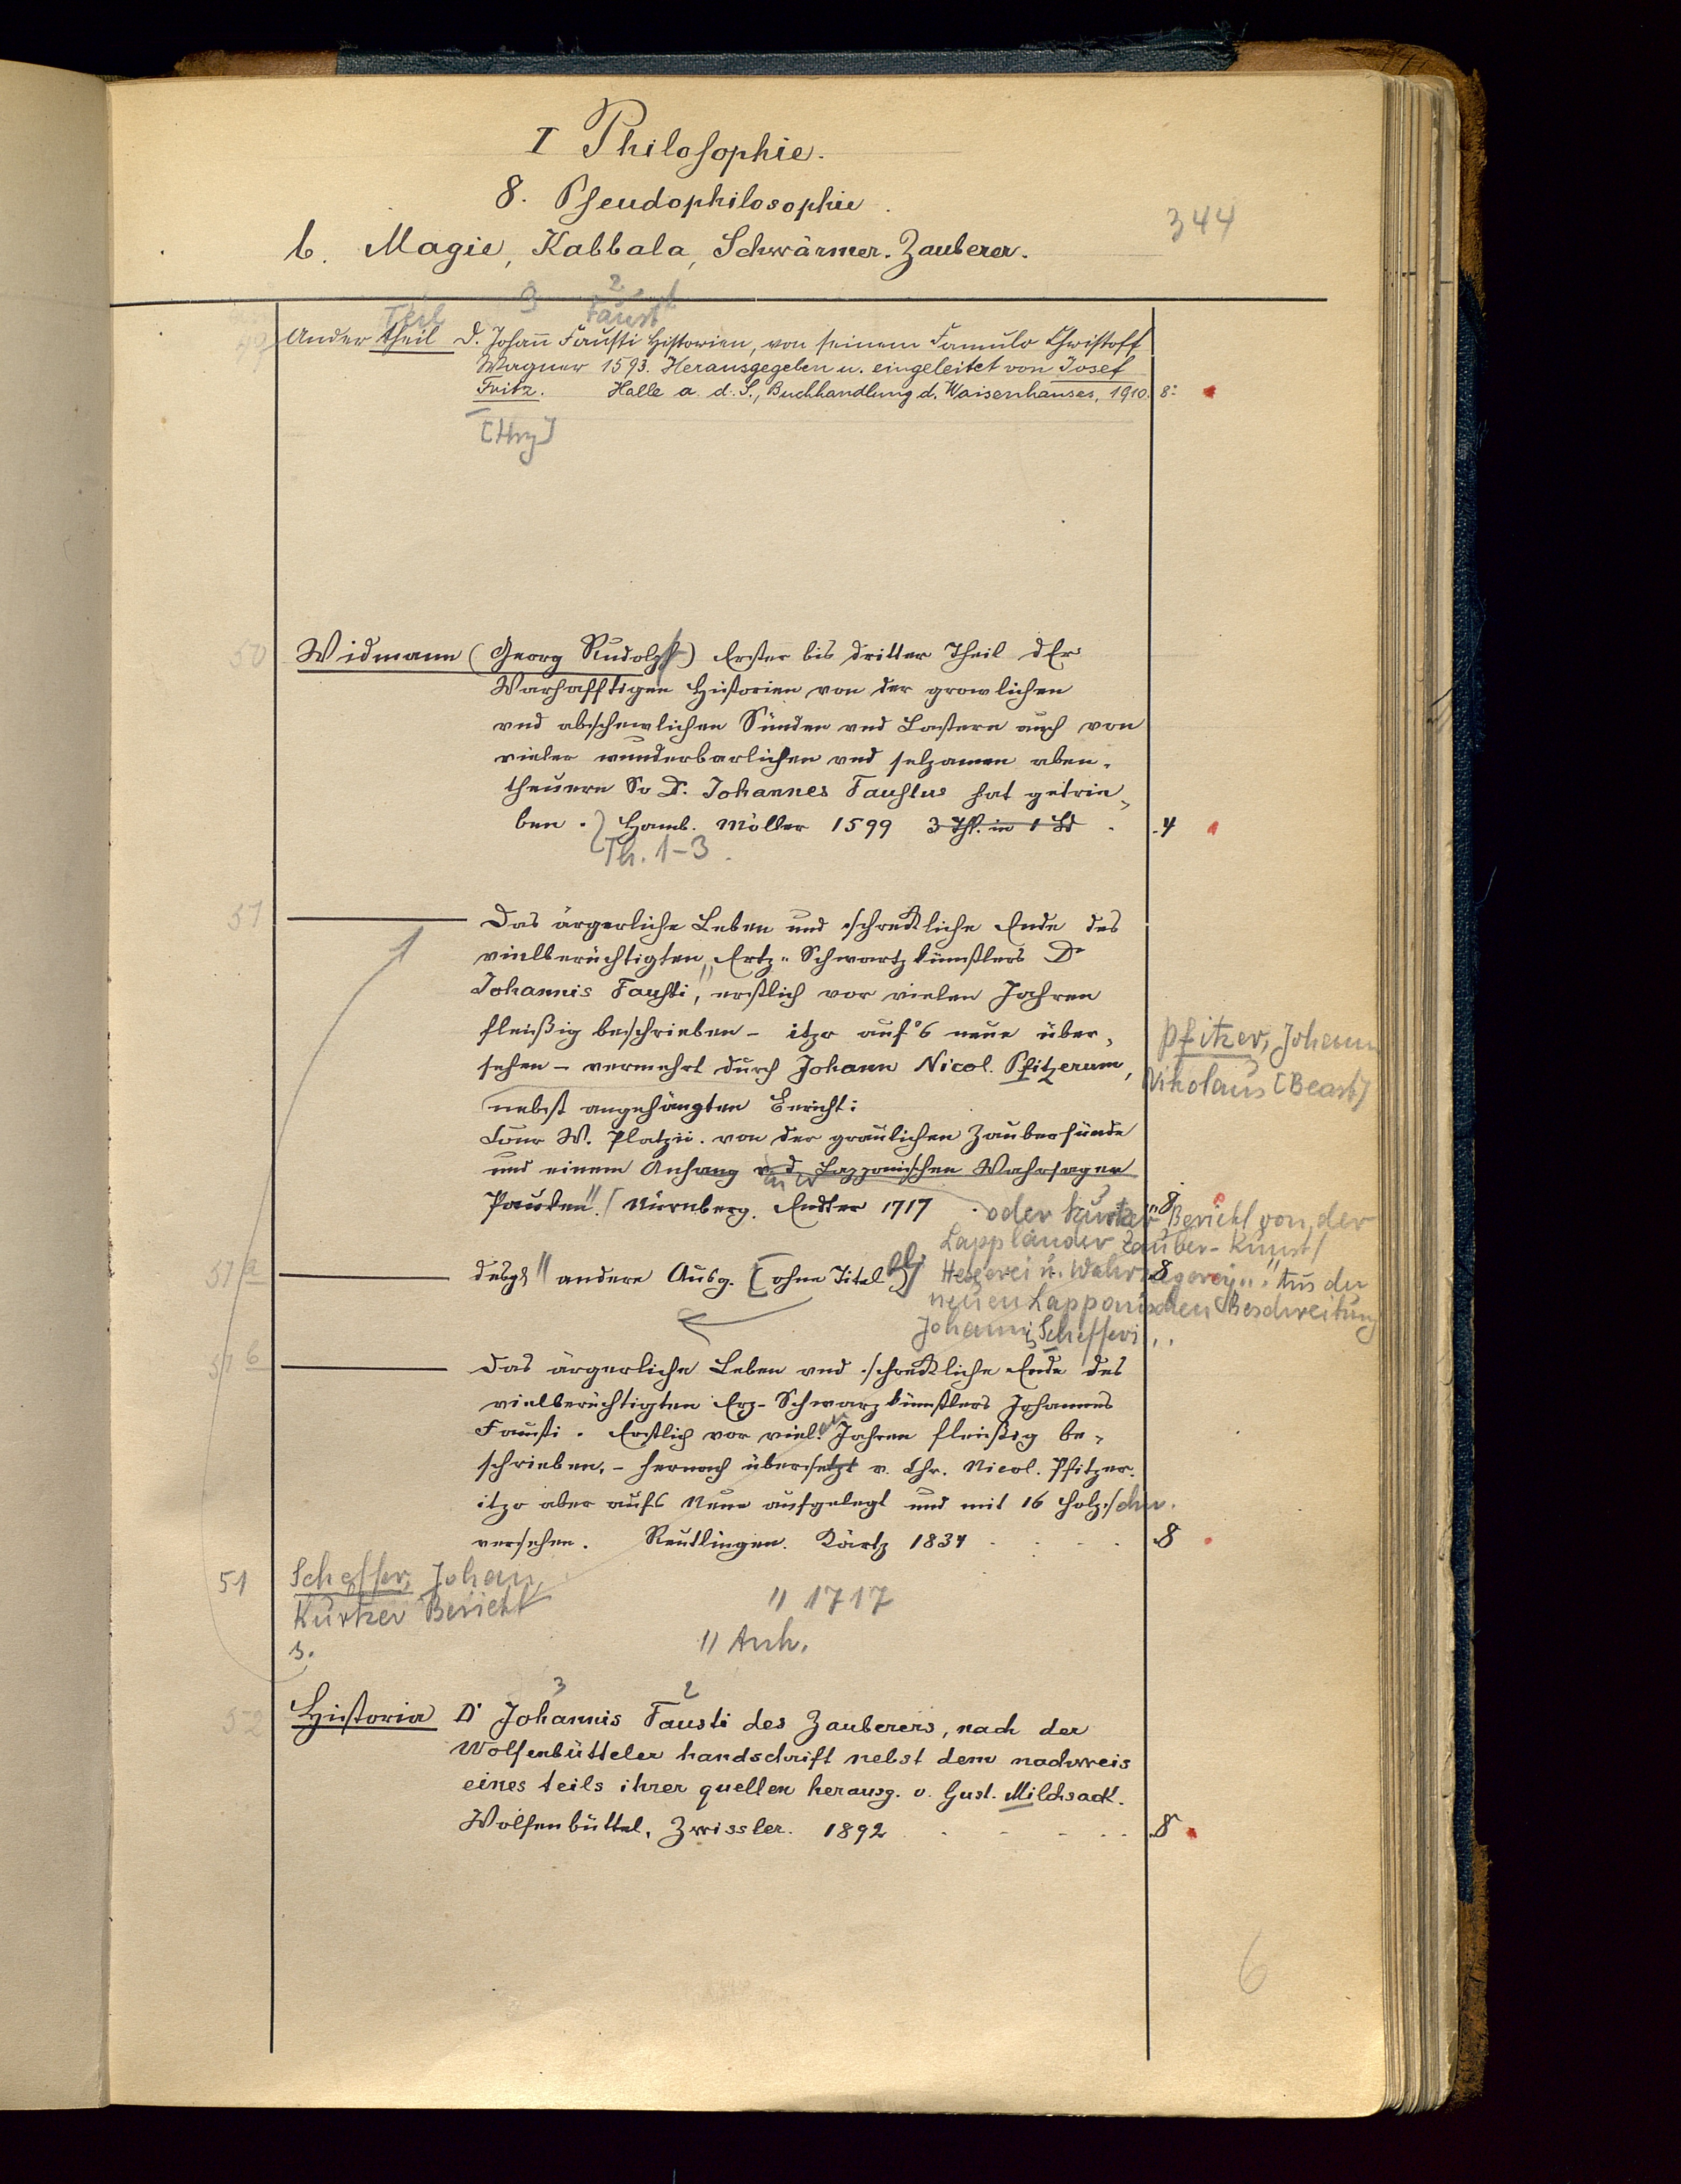 I Philosophie.
8. Pseudophilosophie.
344
b. Magie, Kabbala, Schwärmer. Zauberer.
3 2
Teil Faust
49 Ander theil D. Johañ Fausti Historien, von seinem Famulo Christoff
Wagner 1593. Herausgegeben u. eingeleitet von Josef
Fritz. Halle a. d. S., Buchhandlung d. Waisenhauses, 1910. 8:
[Hrg]
50 Widmann (Georg Rudolph) Erster bis dritter Theil dEr
Warhafftigen Historien von der growlichen
vnd abschewlichen Sünden vnd Lastern auch von
vieler wunderbarlichen vnd selzamen aben-
theuern So D. Johannes Faustus hat getrie-
ben. Hamb. Möller 1599 3 Thl. in 1 Bd. 4
Th. 1-3.
51 Das ärgerliche Leben und schreckliche Ende des
vielberüchtigten Ertz-Schwartzkünstlers Dr
Johannis Fausti, erstlich vor vielen Jahren
fleißig beschrieben - itzo auf's neue über-
sehen - vermehrt durch Johann Nicol. Pfitzerum,
Pfitzer, Johann
Nikolaus [Bearb]
nebst angehängten Bericht:
Conr W. Platzii. von der gräulichen Zaubersünde
und einem Anhang v. d. Lapponischen Wahrsager
Paucken". Nürnberg. Endter 1717 8
oder kurtzer Bericht von der
Lappländer Zauber-Kunst/
Hexerei u. Wahrsagerey..." Aus der
neuen Lapponischen Beschreibung
Johannis Schefferi ..
51a desgl andere Ausg. [ohne Titelbl.] 8
51b Das ärgerliche Leben und schreckliche Ende des
vielberüchtigten Erz-Schwarzkünstlers Johannes
Fausti. Erstlich vor vielen Jahren fleißig be-
schrieben, - hernach übersetzt v. Chr. Nicol. Pfitzer.
itzo aber aufs Neue aufgelegt und mit 16 Holzschn.
versehen. Reutlingen. Kurtz 1834 8
51 Scheffer, Johan,
Kurtzer Bericht " 1717
s. " Anh.
3 2
52 Historia Dr Johannis Fausti des Zauberers, nach der
Wolfenbütteler handschrift nebst dem nachweis
eines teils ihrer quellen herausg. v. Gust. Milchsack.
Wolfenbüttel, Zwissler. 1892 8
6